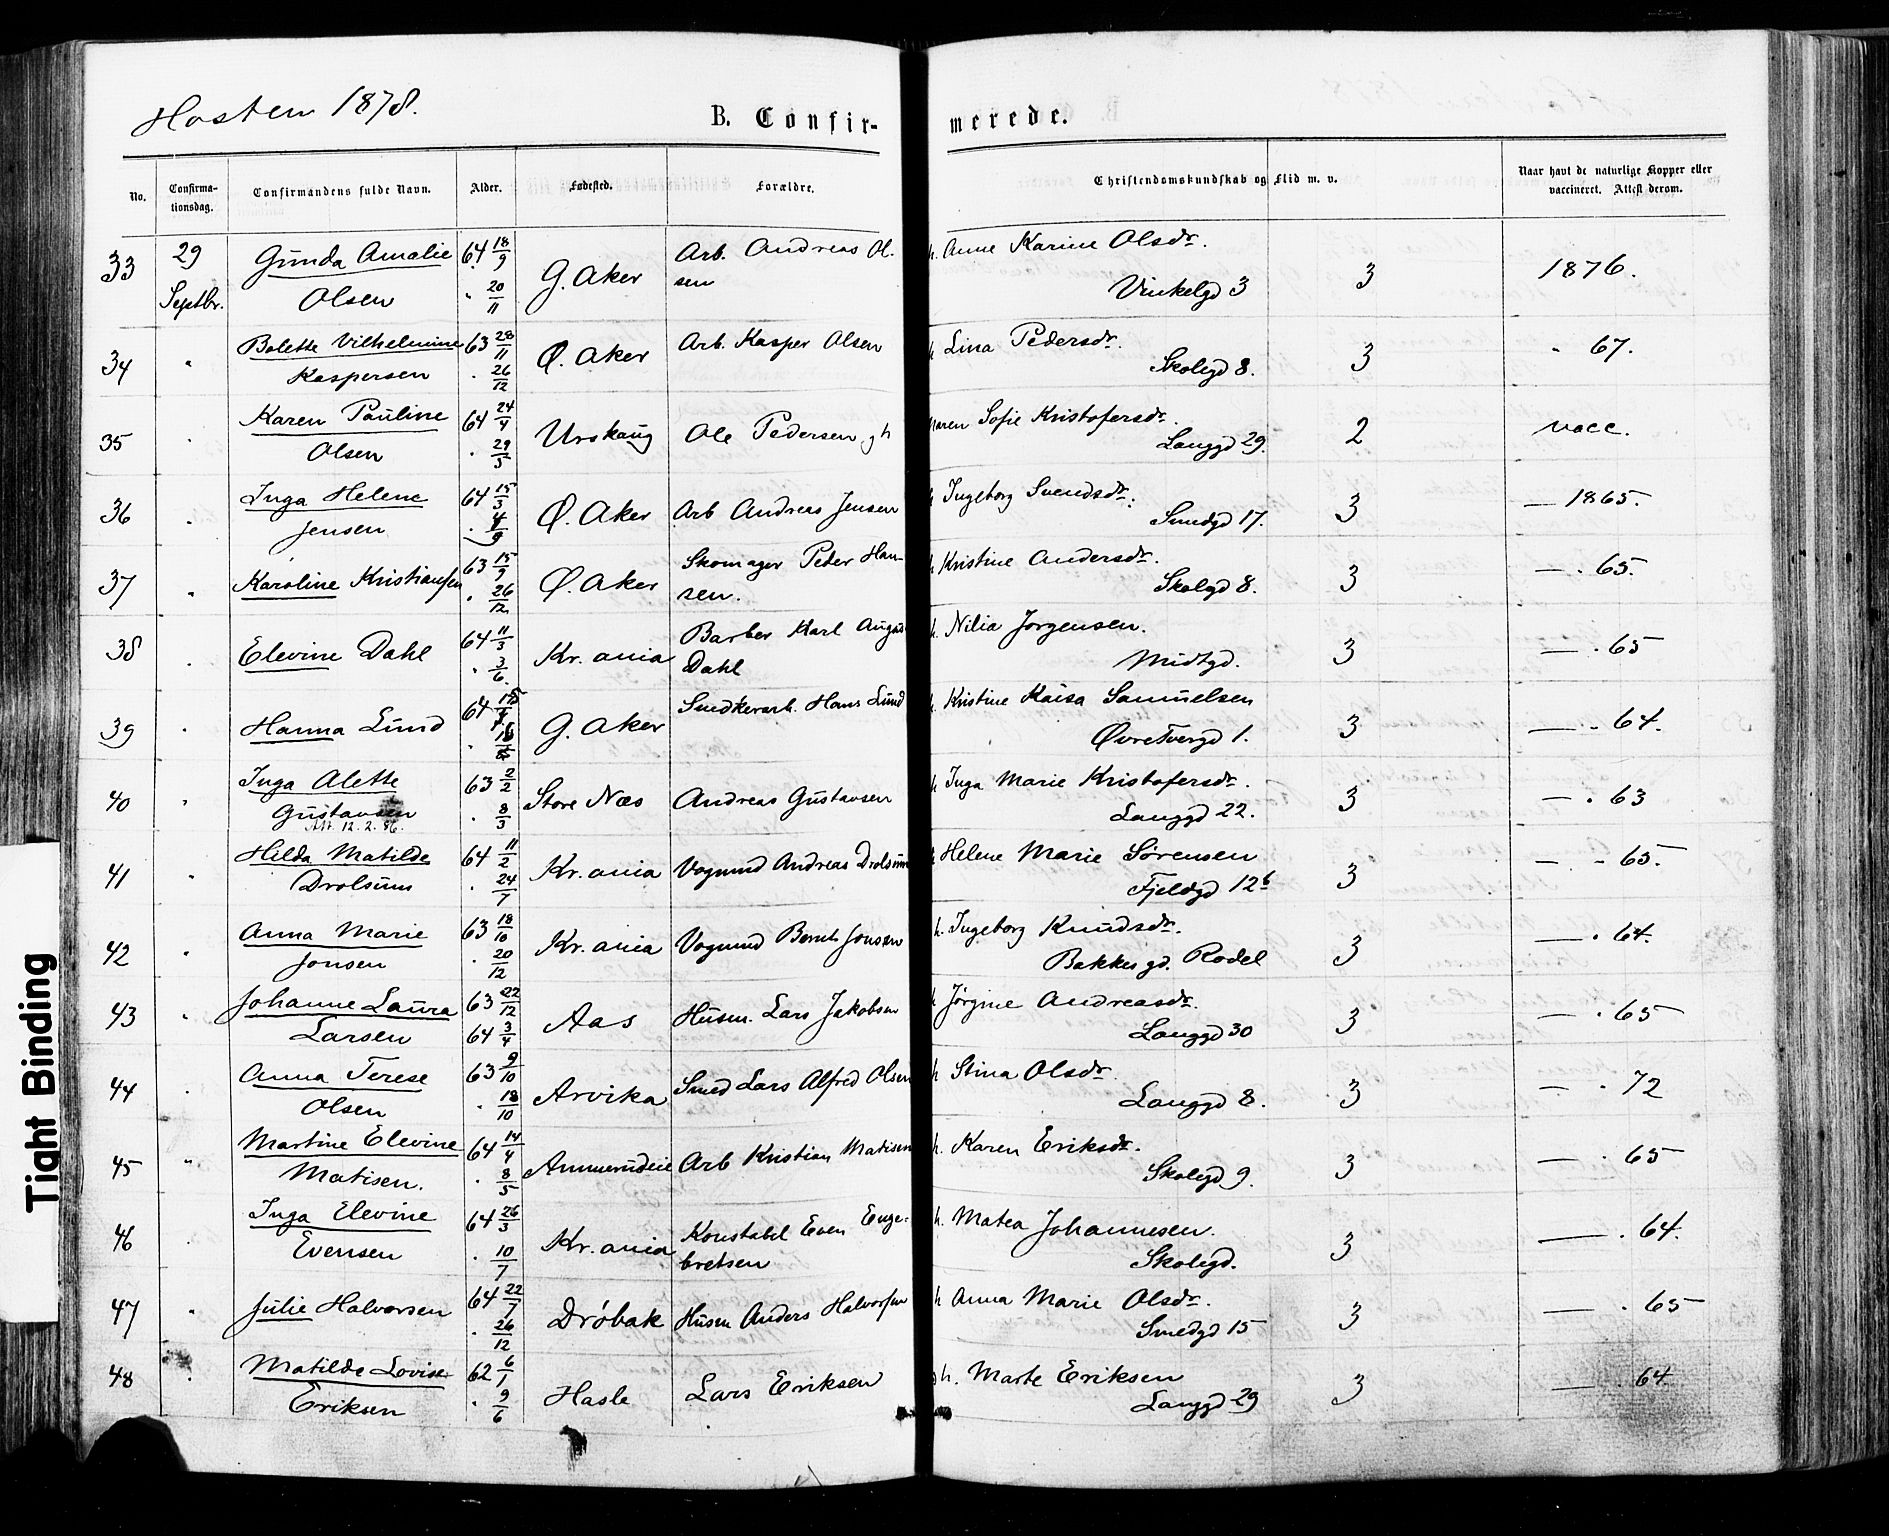 Høsten 1878.
B. Confirmerede.
No.
Confirmationsdag.
Confirmandens fulde Navn.
Alder.
Fødested.
Forældre.
Christendomskundskab og Flid m. v.
Naar havt de naturlige Kopper eller vaccineret. Attest derom.
33 29 Septbr. Gunda Amalie Olsen 64 18/9 " 20/11 G. Aker Arb. Andreas Olsen h. Anne Karine Olsdr. Vinkelgd 3 3 1876.
34 " Bolette Vilhelmine Kaspersen 63 28/11 " 26/12 Ø. Aker Arb. Kasper Olsen h Lina Pedersdr. Skolegd 8. 3 " 67.
35 Karen Pauline Olsen 64 24/4 " 29/5 Urskaug Ole Pedersen gh Maren Sofie Kristofersdr. Langgd 29. 2 vacc.
36 " Inga Helene Jensen 64 15/3 " 4/9 Ø. Aker Arb Andreas Jensen h Ingeborg Svendsdr. Smedgd 17. 3 — 1865.
37 " Karoline Kristiansen 63 15/9 " 26/12 Ø. Aker Skomager Peder Hansen. h Kristine Andersdr. Skolegd 8. 3 — " 65.
38 " Elevine Dahl 64 11/3 " 3/6 Kr.ania Barber Karl August Dahl h. Nilia Jørgensen. Midtgd. 3 — " 65
39 " Hanna Lund 64 G. Aker Snedkerarb. Hans Lund h. Kristine Kaisa Samuelsen Øvre Tvergd 1. 3 — " 64.
40 " Inga Alette Gustavsen Att. 12.2.86. 63 2/2 " 8/3 Store Næs Andreas Gustavsen h Inga Marie Kristofersdr. Langgd 22. 3 — " 63
41 " Hilda Matilde Drolsum 64 11/2 " 24/7 Kr.ania Vognmd Andreas Drolsum h Helene Marie Sørensen Fjeldgd 12b 3 — " 65.
42 " Anna Marie Jonsen 63 18/10 " 20/12 Kr.ania Vognmd Bernt Jonsen h. Ingeborg Knudsdr. Bakkesgd. Rodel 3 — " 64.
43 " Johanne Laura Larsen 63 22/12 64 3/4 Aas Husm. Lars Jakobsen h Jørgine Andreasdr. Langgd 30 3 — " 65
44 " Anna Terese Olsen 63 9/10 " 18/10 Arvika Smed Lars Alfred Olsen h Stina Olsdr. Langgd 8. 3 — " 72
45 " Martine Elevine Matisen. 64 14/4 " 8/5 Ammerudeie Arb Kristian Matisen h. Karen Eriksdr. Skolegd 9. 3 — " 65
46 " Inga Elevine Evensen 64 26/3 " 10/7 Kr.ania Konstabel Even Engebretsen h. Matea Johannesen. Skolegd. 3 — " 64.
47 " Julie Halvorsen 64 22/7 " 26/12 Drøbak Husm Anders Halvorsen h Anna Marie Olsdr. Smedgd 15 3 — " 65
48 " Matilde Lovise Eriksen 62 6/1 " 9/6 Hasle Lars Eriksen gh. Marte Eriksen Langgd 29 3 — " 64
Tight Binding